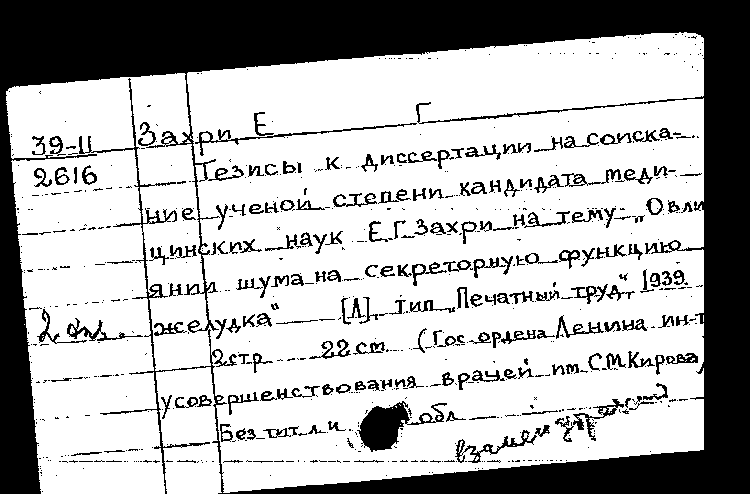 39-11 Захри, Е Г
2616 Тезисы к диссертации на соиска-
ние ученой степени кандидата меди-
цинских наук Е.Г.Захри на тему: „О вли
янии шума на секреторную функцию
2 экз. желудка“ [Л], тип „Печатный труд“, 1939
2стр 22 cm (Гос ордена Ленина ин-т
усовершенствования врачей им С.М.Кирова)
Без тит л и обл
взамен